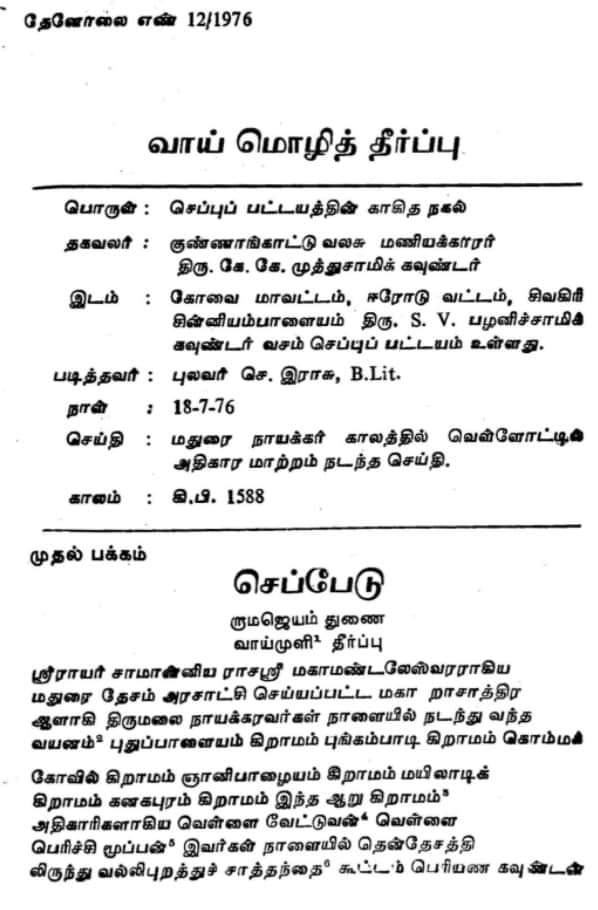 தேனோலை எண் 12/1976
வாய் மொழித் தீர்ப்பு
பொருள் : செப்புப் பட்டயத்தின் காகித நகல்
தகவலர் : குண்ணாங்காட்டு வலசு மணியக்காரர்
திரு. கே. கே. முத்துசாமிக் கவுண்டர்
இடம் : கோவை மாவட்டம், ஈரோடு வட்டம், சிவகிரி
சின்னியம்பாளையம் திரு. S. V. பழனிச்சாமிக்
கவுண்டர் வசம் செப்புப் பட்டயம் உள்ளது.
படித்தவர் : புலவர் செ. இராசு, B.Lit.
நாள் : 18-7-76
செய்தி : மதுரை நாயக்கர் காலத்தில் வெள்ளோட்டில்
அதிகார மாற்றம் நடந்த செய்தி.
காலம் : கி.பி. 1588
முதல் பக்கம்
செப்பேடு
ருமஜெயம் துணை
வாய்முளி¹ தீர்ப்பு
ஸ்ரீராயர் சாமான்னிய ராசஸ்ரீ மகாமண்டலேஸ்வரராகிய
மதுரை தேசம் அரசாட்சி செய்யப்பட்ட மகா றாசாத்திர
ஆளாகி திருமலை நாயக்கரவர்கள் நாளையில் நடந்து வந்த
வயனம்² புதுப்பாளையம் கிறாமம் புங்கம்பாடி கிறாமம் கொம்மக்
கோவில் கிறாமம் ஞானிபாழையம் கிறாமம் மயிலாடிக்
கிறாமம் கனகபுரம் கிறாமம் இந்த ஆறு கிறாமம்³
அதிகாரிகளாகிய வெள்ளை வேட்டுவன்⁴ வெள்ளை
பெரிச்சி மூப்பன்⁵ இவர்கள் நாளையில் தென்தேசத்தி
லிருந்து வல்லிபுறத்துச் சாத்தந்தை⁶ கூட்டம் பெரியண கவுண்டன்